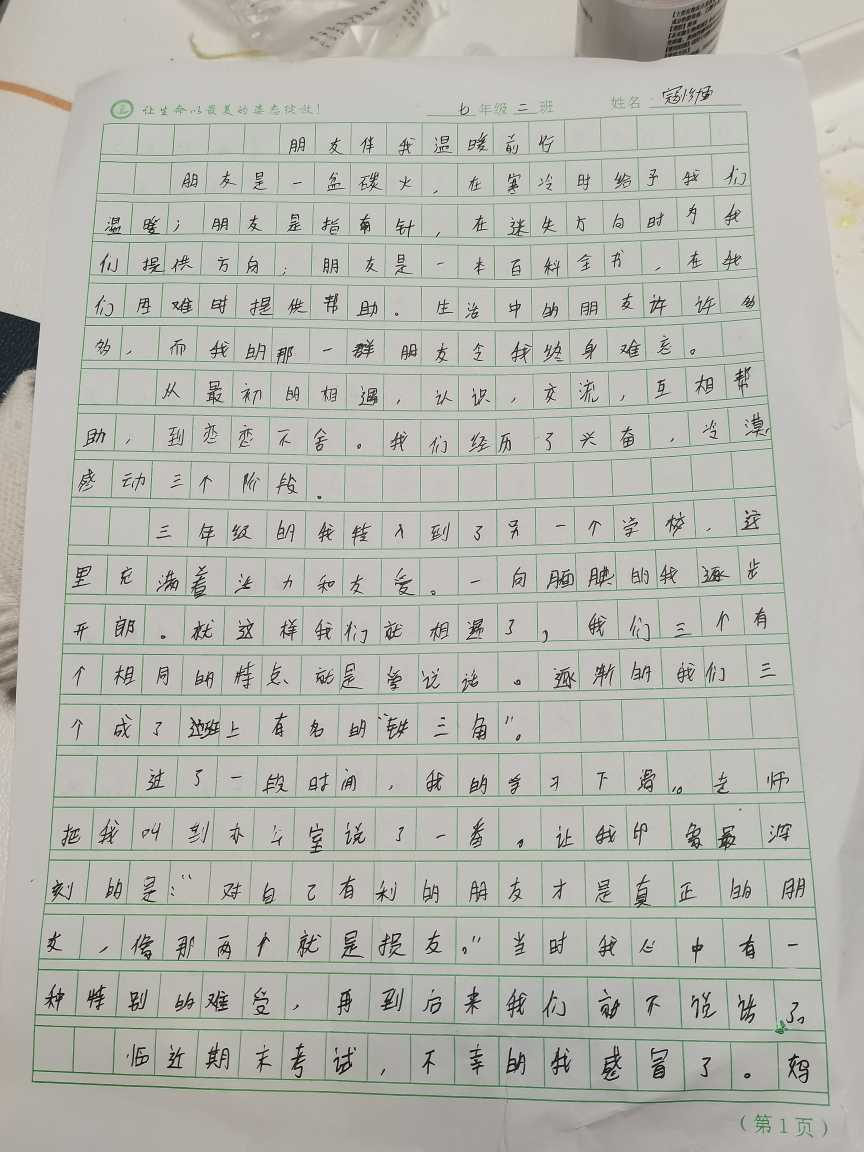 让生命以最美的姿态绽放！ 七年级二班 姓名
朋友伴我温暖前行
朋友是一盆碳火，在寒冷时给予我们
温暖；朋友是指南针，在迷失方向时为我
们提供方向；朋友是一本百科全书，在我
们困难时提供帮助。生活中的朋友许许多
多，而我的那一群朋友令我终身难忘。
从最初的相遇，认识，交流，互相帮
助，到恋恋不舍。我们经历了兴奋，冷漠，
感动三个阶段。
三年级的我转入到了另一个学校，这
里充满着活力和友爱。一向腼腆的我逐步
开朗。就这样我们就相遇了，我们三个有
个相同的特点就是爱说话。逐渐的我们三
个成了班上有名的“铁三角”。
过了一段时间，我的学习下滑。老师
把我叫到办公室说了一番。让我印象最深
刻的是：“对自己有利的朋友才是真正的朋
友，像那两个就是损友。”当时我心中有一
种特别的难受，再到后来我们就不说话了。
临近期末考试，不幸的我感冒了。妈
（第1页）